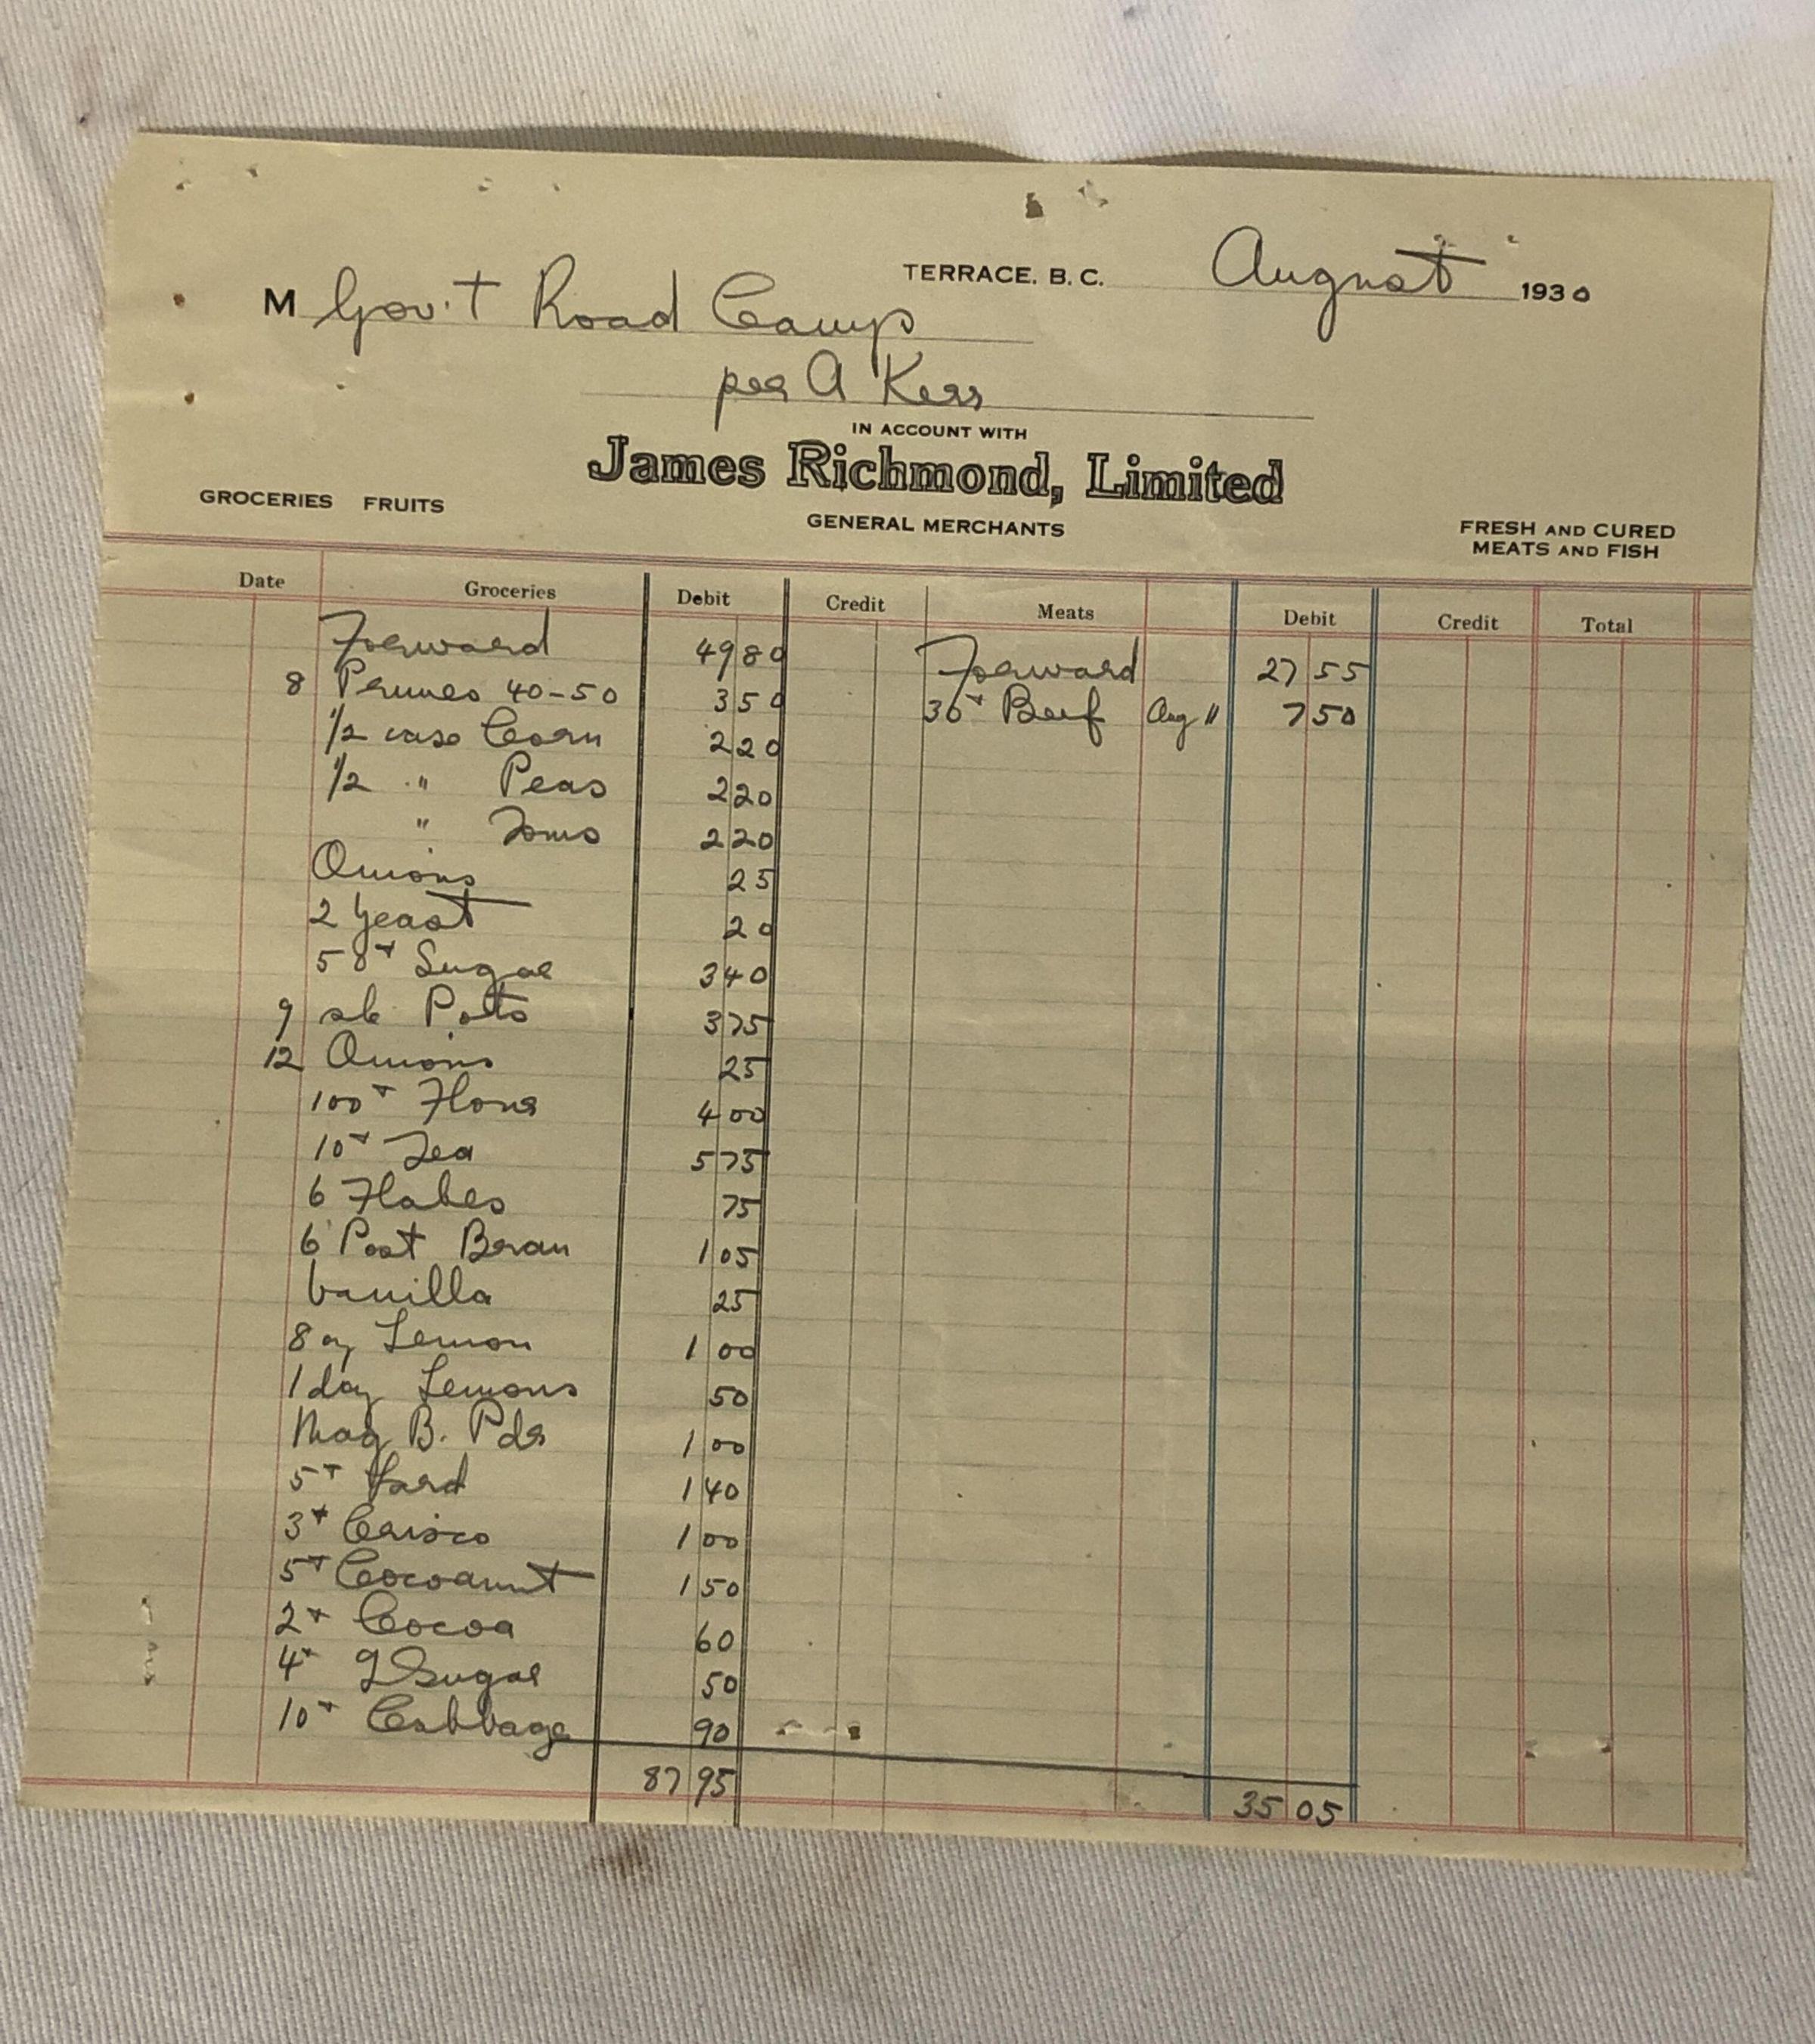 TERRACE. B. C. August 1930
M Gov't Road Camp
per A Kerr
IN ACCOUNT WITH
James Richmond, Limited
GROCERIES FRUITS
GENERAL MERCHANTS
FRESH AND CURED
MEATS AND FISH
Date Groceries Debit Credit Meats Debit Credit Total
Forward 49 80 Forward 27 55
8 Prunes 40-50 3 50 30# Beef Aug 11 7 50
1/2 case Corn 2 20
1/2 " Peas 2 20
" Toms 2 20
Onions 25
2 Yeast 20
58# Sugar 3 40
9 sk Potts 3 75
12 Onions 25
100# Flour 4 00
10# Tea 5 75
6 Flakes 75
6 Post Bran 1 05
Vanilla 25
8 oz Lemon 1 00
1 doz Lemons 50
Mag B. Pdr 1 00
5# Lard 1 40
3# Crisco 1 00
5# Cocoanut 1 50
2# Cocoa 60
4# I Sugar 50
10# Cabbage 90
87 95 35 05